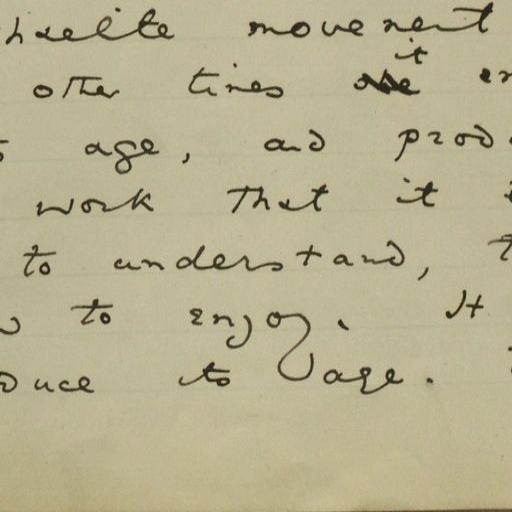 haelite movement
other times it
age, and prod
work that it
to understand,
to enjoy. It
duce to age.